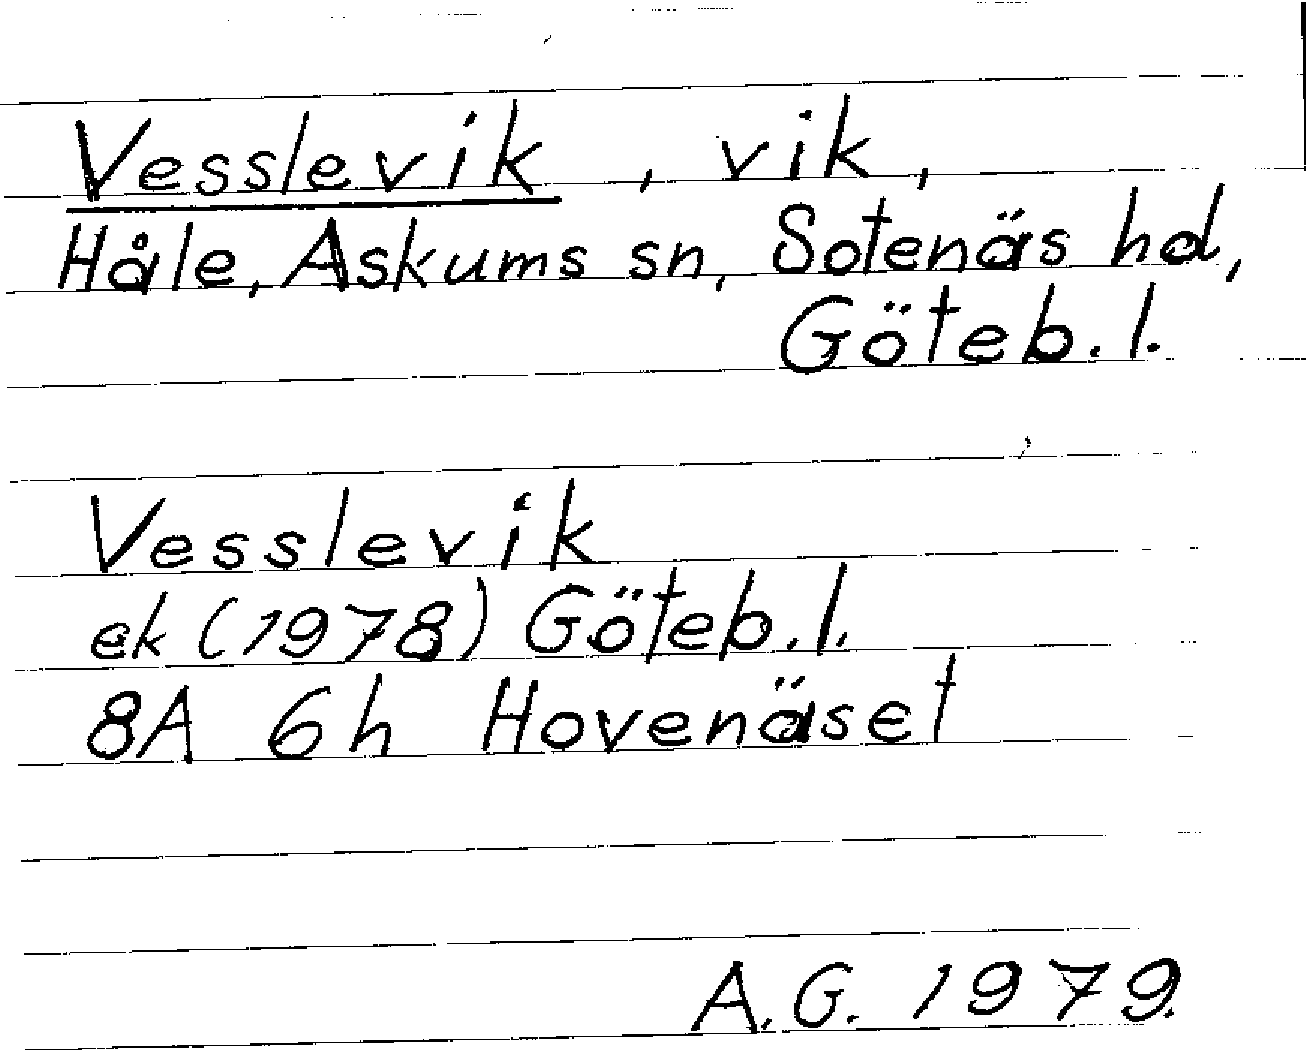 Vesslevik, vik,
Håle, Askums sn, Sotenäs hd,
Göteb. l.
Vesslevik
ek (1978) Göteb. l.
8A 6h Hovenäset
A. G. 1979.